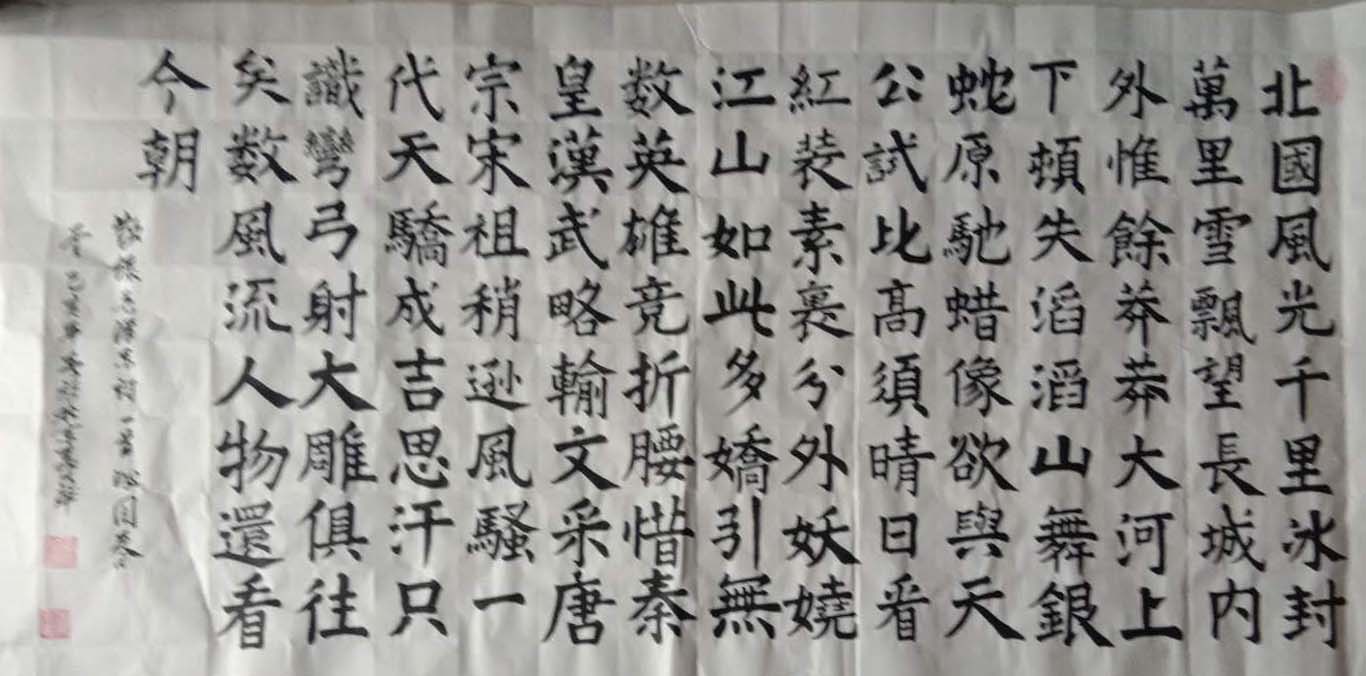 北國風光千里冰封
萬里雪飄望長城内
外惟餘莽莽大河上
下頓失滔滔山舞銀
蛇原馳蜡像欲與天
公試比高須晴日看
紅裝素裹分外妖嬈
江山如此多嬌引無
数英雄竞折腰惜秦
皇漢武略輸文采唐
宗宋祖稍逊風騷一
代天驕成吉思汗只
識彎弓射大雕俱往
矣数風流人物還看
今朝
毛澤东词一首沁园春
雪己亥年